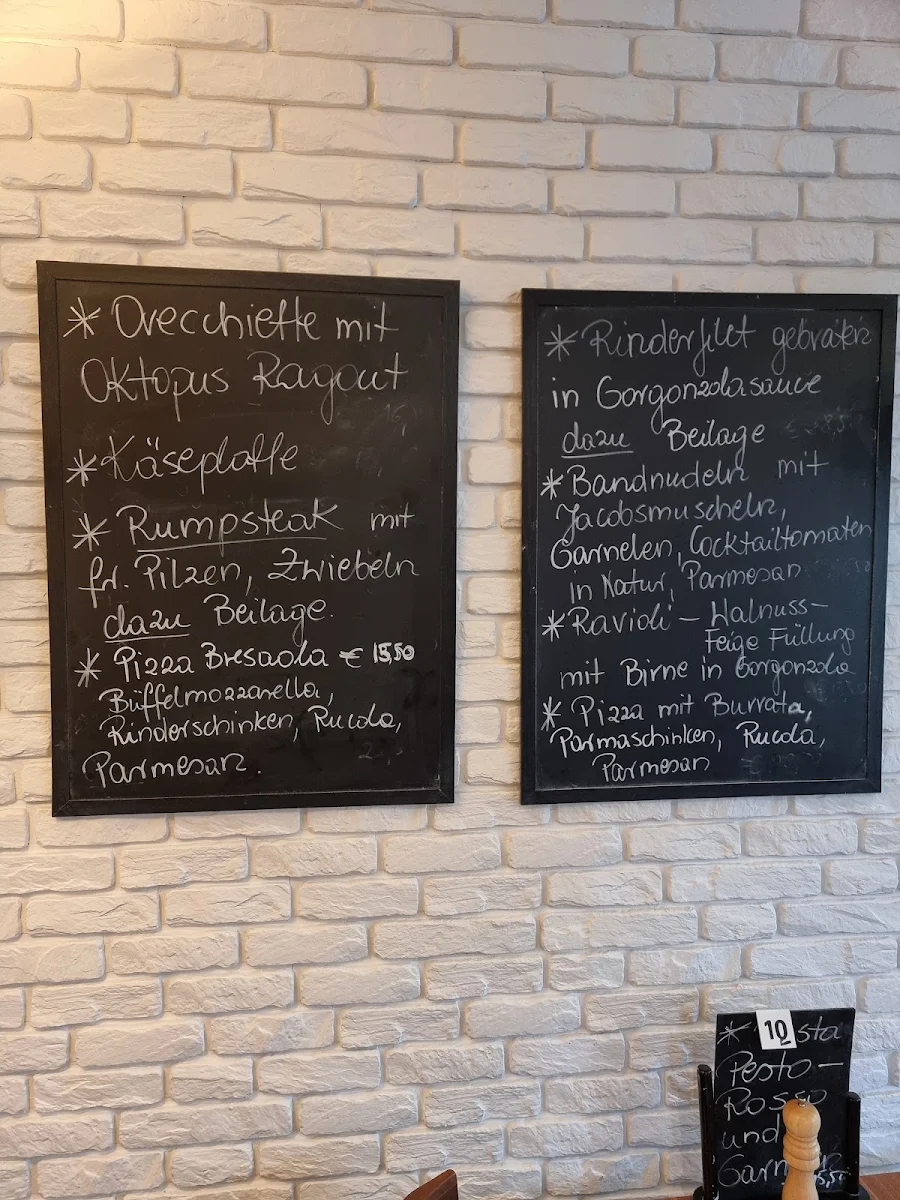 * Orecchiette mit
Oktopus Ragout
* Käseplatte
* Rumpsteak mit
fr. Pilzen, Zwiebeln
dazu Beilage.
* Pizza Bresaola € 15,50
Büffelmozzarella,
Rinderschinken, Rucola,
Parmesan.
* Rinderfilet gebraten
in Gorgonzolasauce
dazu Beilage
* Bandnudeln mit
Jacobsmuscheln,
Garnelen, Cocktailtomaten
in Natur, Parmesan
* Ravioli – Walnuss–
Feige Füllung
mit Birne in Gorgonzola
* Pizza mit Burrata,
Parmaschinken, Rucola,
Parmesan
10
Pesto –
Rosso
und